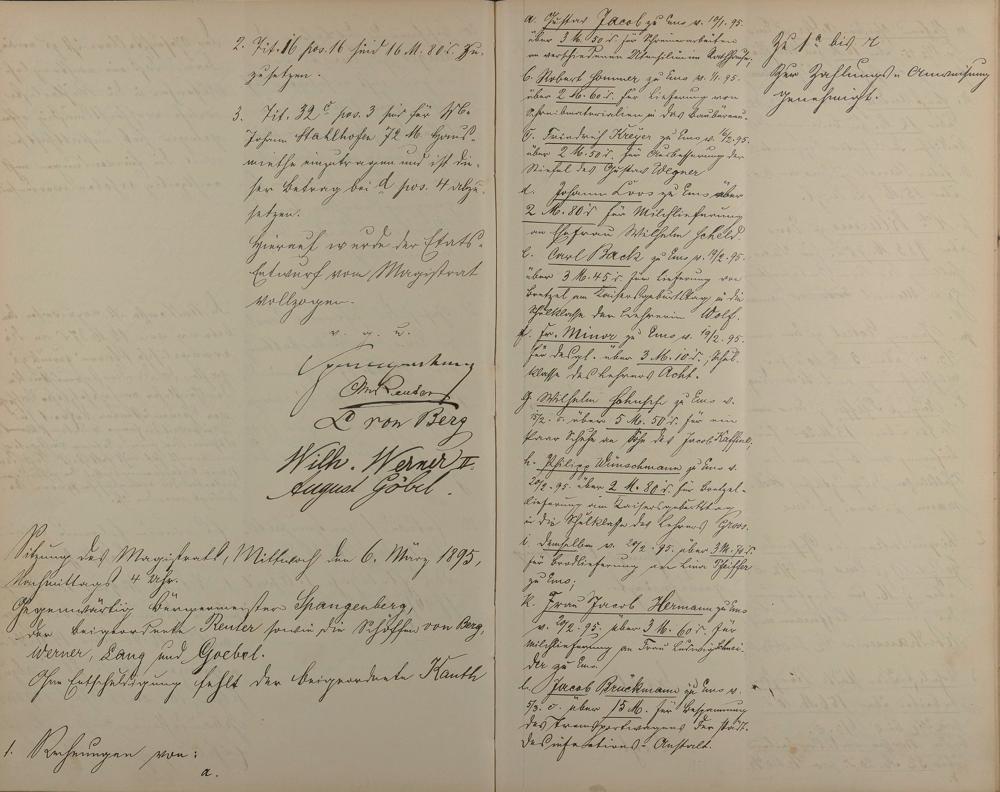 2. Tit. 16 pos. 16 sind 16 M. 80 d. Zu-
zusetzen.
3. Tit. 32 c pos. 3 sind für
Johann Stahlhofen 72 M. Haus-
miethe einzutragen und ist die-
ser Betrag bei d pos. 4 abzu-
setzen.
Hierauf wurde der Etats-
Entwurf vom Magistrat
vollzogen.
v. g. u.
Spangenberg
CM Reuter
D von Berg
Wilh. Werner II.
August Göbel.
Sitzung des Magistrats, Mittwoch den 6. März 1895,
Nachmittags 4 Uhr.
Gegenwärtig Bürgermeister Spangenberg,
der Beigeordnete Reuter sowie die Schöffen von Berg,
Werner, Lang und Goebel.
Ohne Entschuldigung fehlt der Beigeordnete Kauth
1. Rechnungen von:
a.
a. Gustav Jacob zu Ems v. 19/1. 95.
über 3 M. 50 d für Schreinerarbeiten
an verschiedenen Utensilien im Rathhause;
b. Robert Hommer zu Ems v. /1. 95.
über 2 M. 60 d. für Lieferung von
Schreibmaterialien in das Baubüreau.
c. Friedrich Kreyer zu Ems v. /2. 95.
über 2 M. 50 d. für Ausbesserung der
Stiefel des Gustav Wegner
d. Johann Loos zu Ems über
2 M. 80 d für Milchlieferung
an Ehefrau Wilhelm Scheld.
e. Carl Back zu Ems v. /2. 95.
über 3 M. 45 d. für Lieferung von
Bretzel am Kaisersgeburtstag in die
Schulklasse der Lehrerin Wolf.
f. Fr. Minor zu Ems v. 19/2. 95.
für desgl. über 3 M. 10 d., Schul-
klasse des Lehrers Acht.
g. Wilhelm zu Ems v.
15/2. c. über 5 M. 50 d. für ein
Paar Schuhe an Sohn des Jacob
h. Philipp Wünschmann zu Ems v.
20/2. 95. über 2 M. 80 d. für Bretzel-
lieferung am Kaisersgeburtstag
in die Schulklasse des Lehrers Groos.
i. demselben v. 20/2. 95. über 3 M.
für Brodlieferung an Lina Pfeiffer
zu Ems;
k. Frau Jacob Hermann zu Ems
v. 20/2. 95. über 3 M. 60 d. für
Milchlieferung an Frau Ludwig Schnei-
der zu Ems.
l. Jacob Bruckmann zu Ems v.
5/3. c. über 15 M. für Bespannung
des Transportwagens der städt.
Desinfections-Anstalt.
Zu 1 a bis l
Zur Zahlungs-Anweisung
genehmigt.